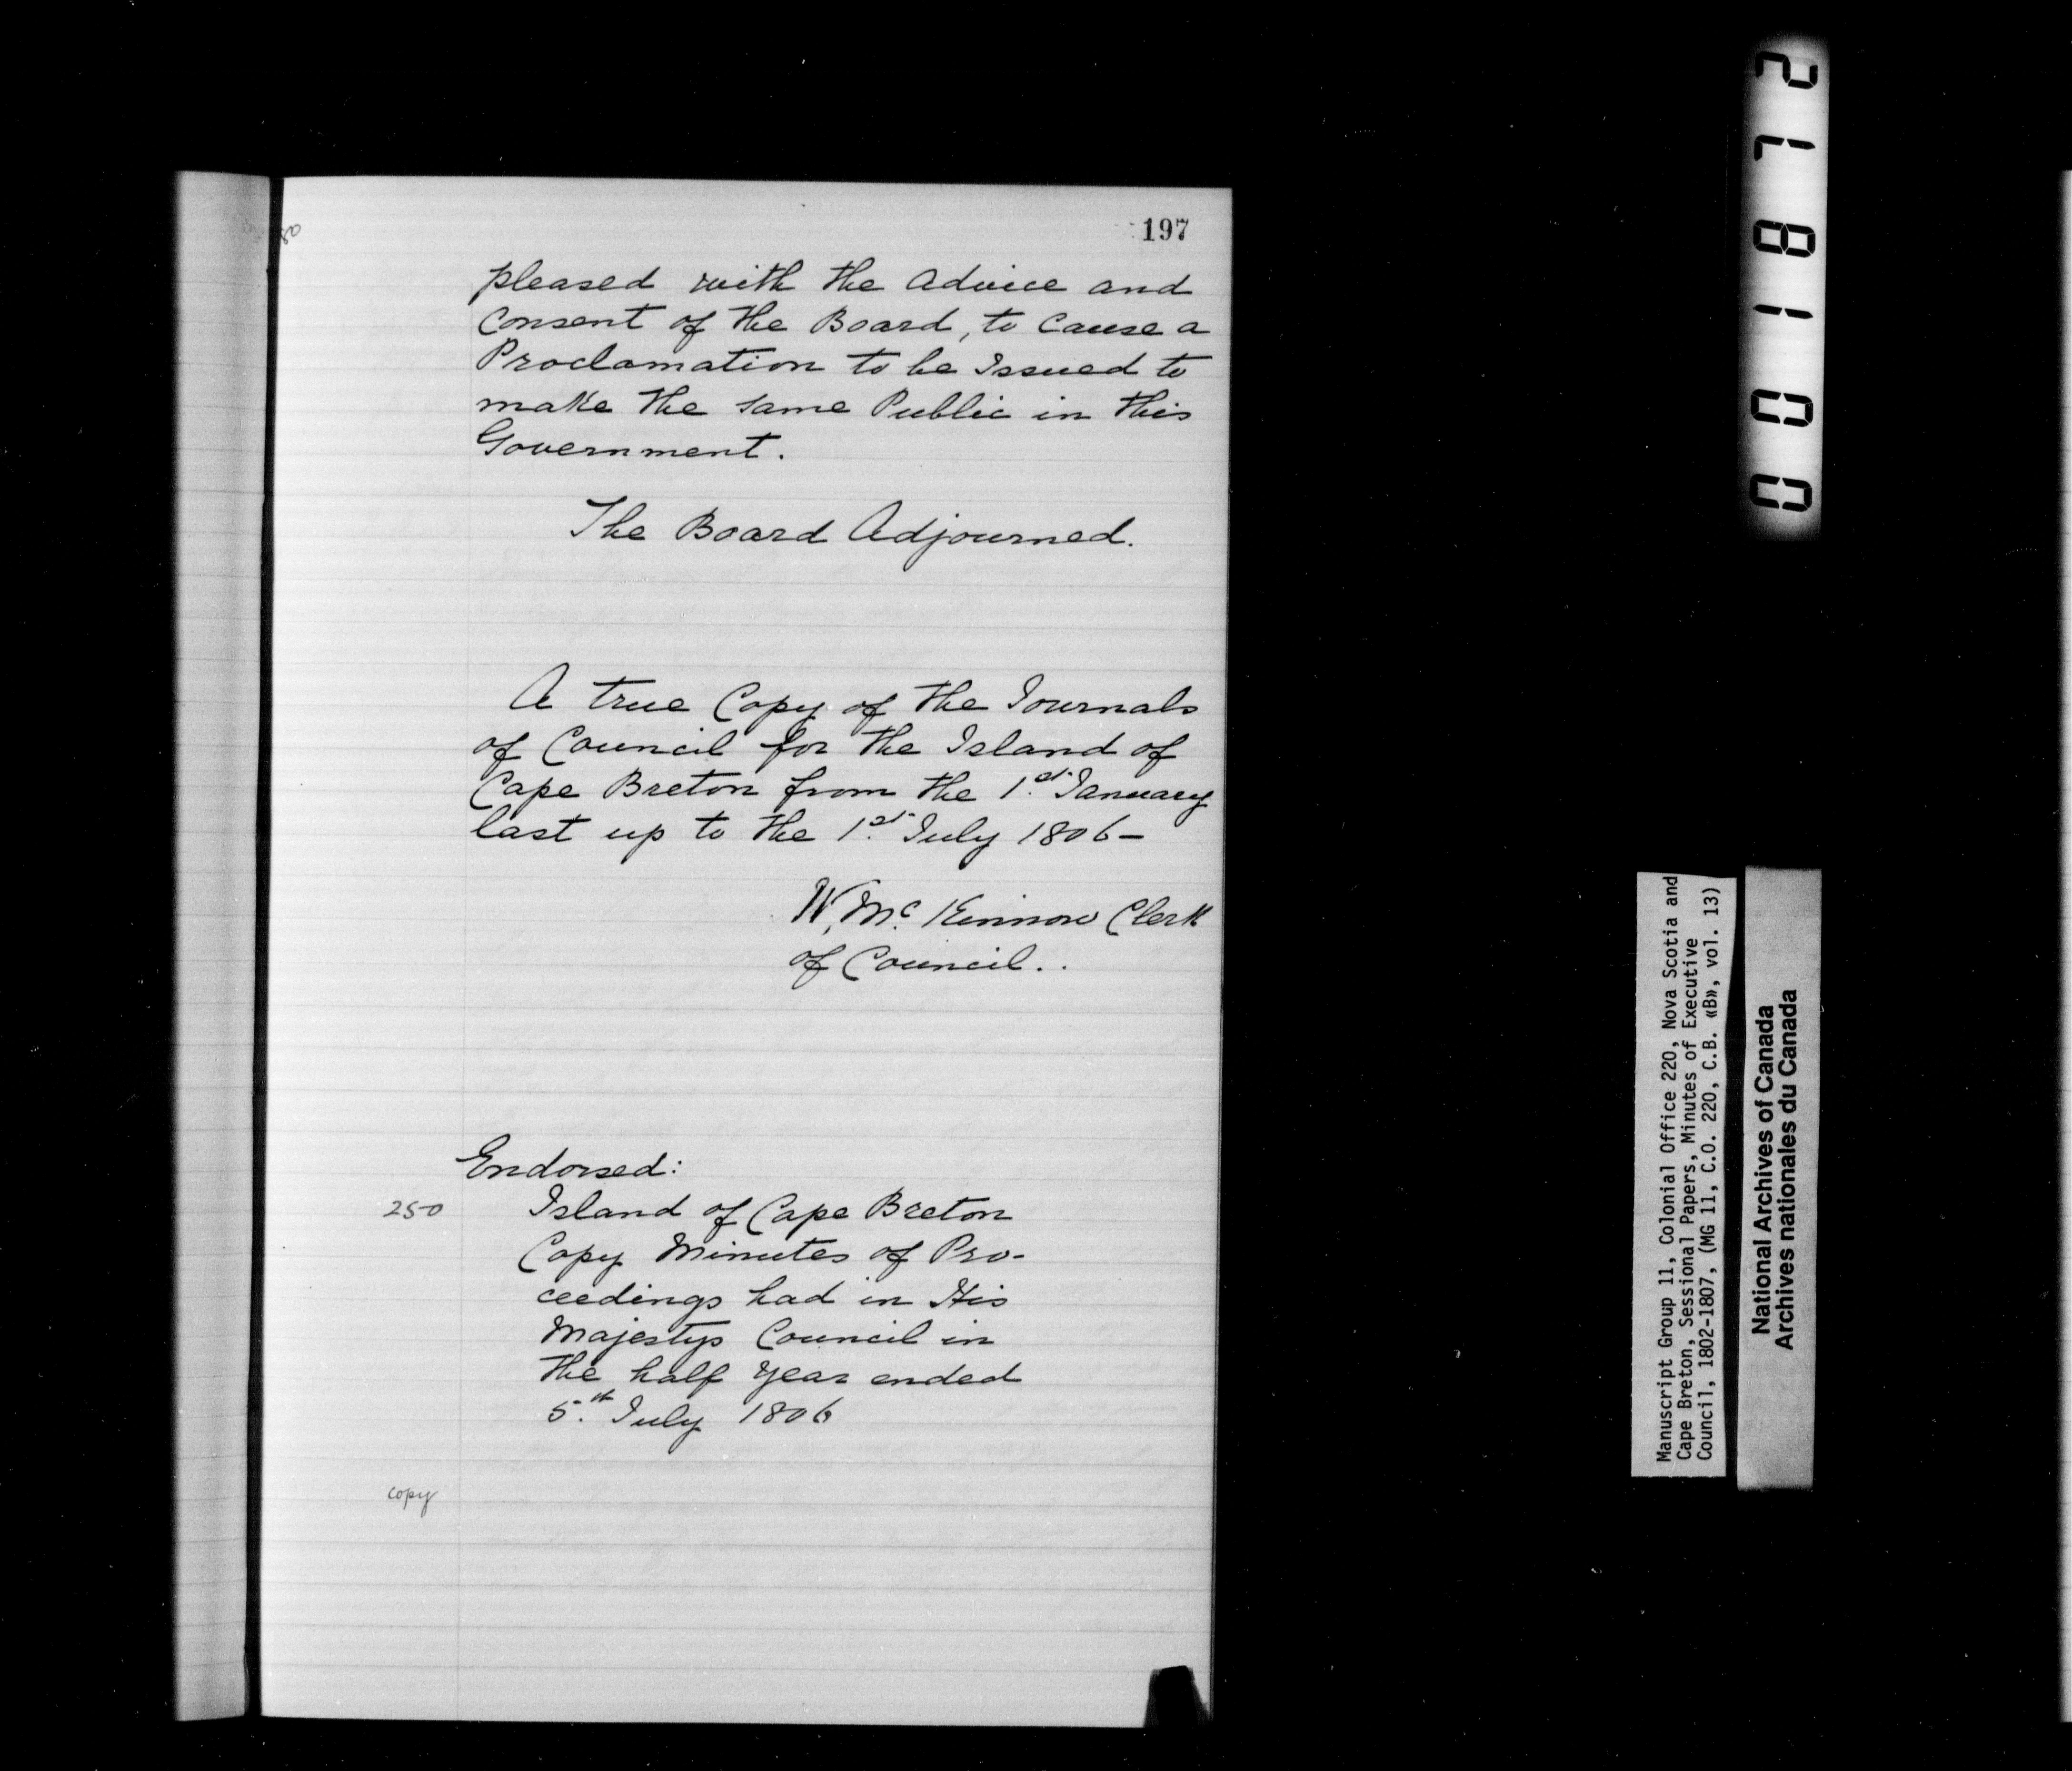 197
pleased with the Advice and
Consent of the Board, to Cause a
Proclamation to be Issued to
make the same Public in this
Government.
The Board Adjourned.
A true Copy of the Journals
of Council for the Island of
Cape Breton from the 1st. January
last up to the 1st. July 1806—
W. Mc. Kinnon Clerk
of Council..
Endorsed:
250
Island of Cape Breton
Copy Minutes of Pro-
ceedings had in His
Majestys Council in
the half year ended
5.th July 1806
copy
001872
Manuscript Group 11, Colonial Office 220, Nova Scotia and
Cape Breton, Sessional Papers, Minutes of Executive
Council, 1802-1807, (MG 11, C.O. 220, C.B. «B», vol. 13)
National Archives of Canada
Archives nationales du Canada